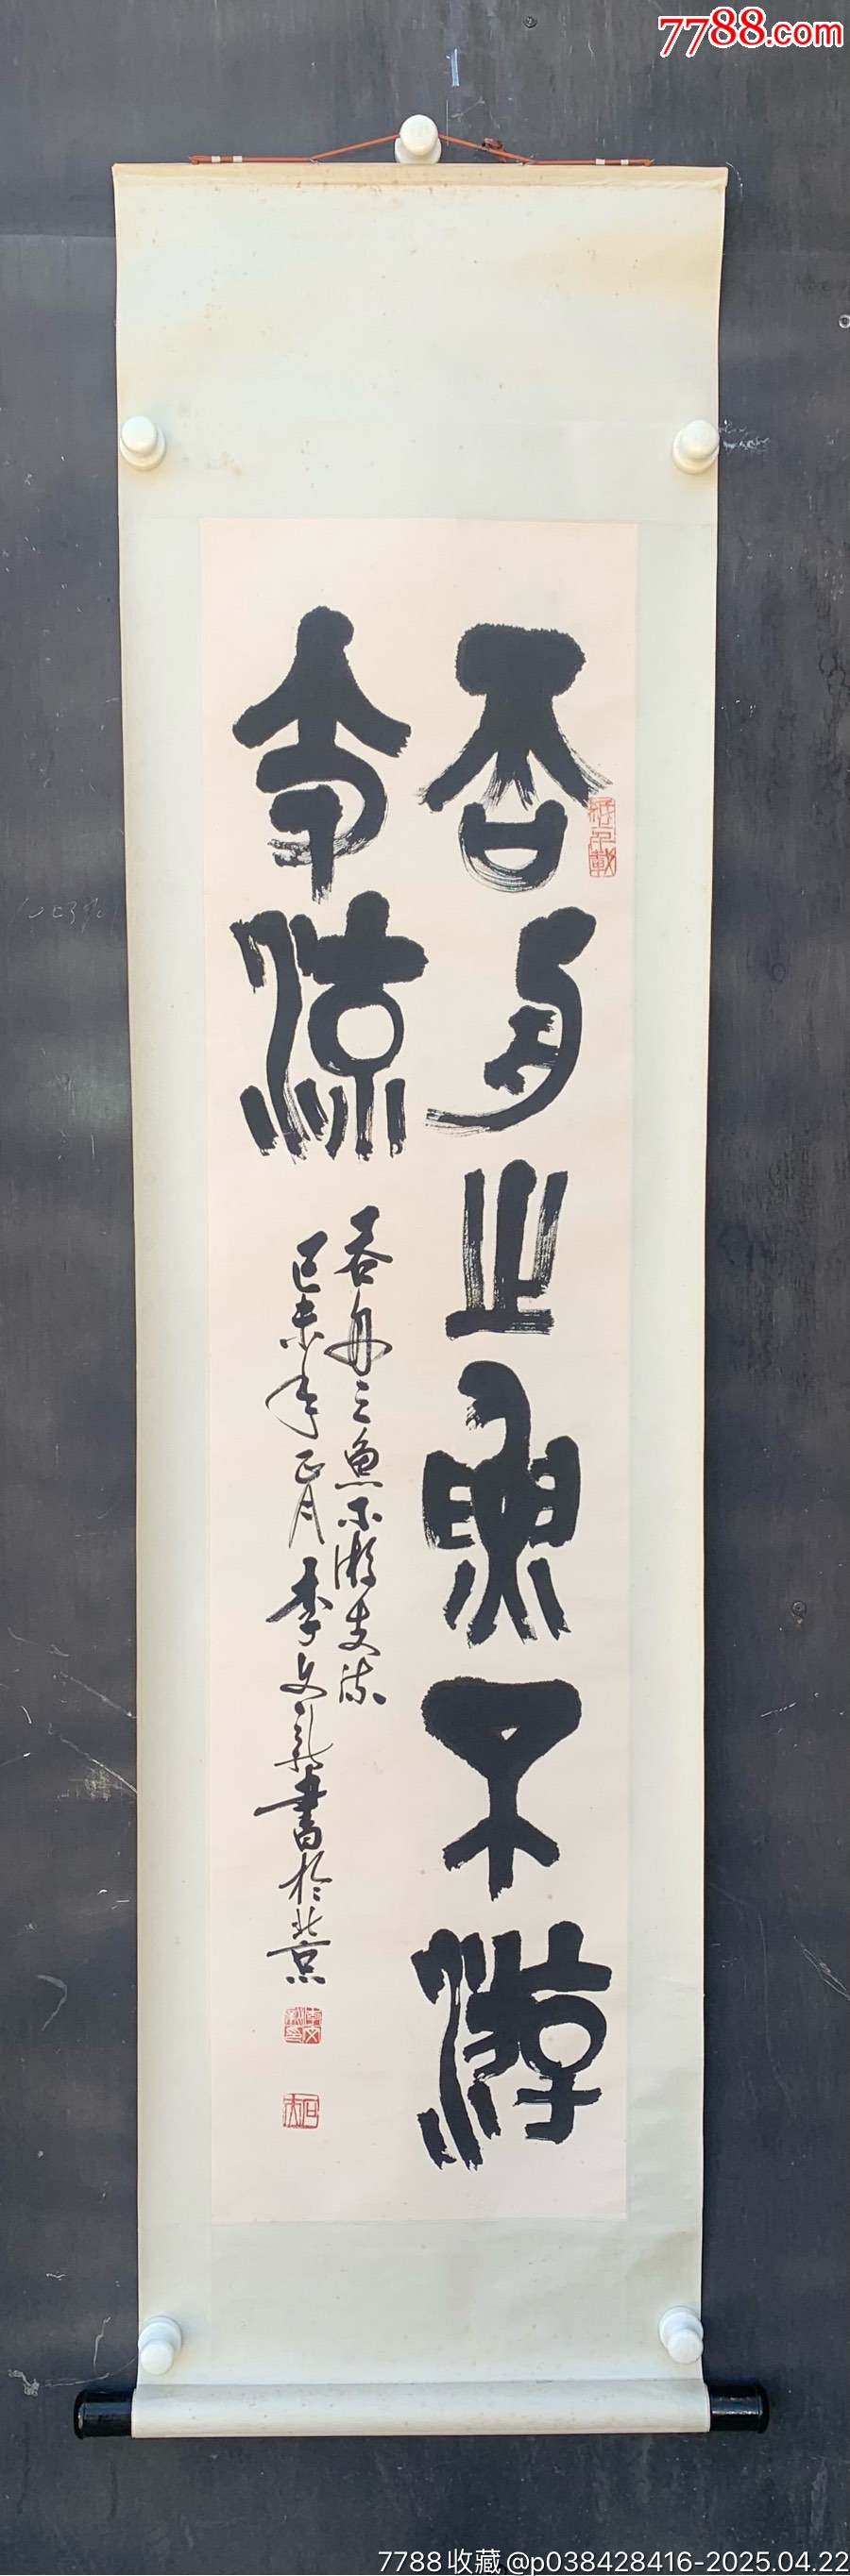 7788.com
吞舟之魚不游
支流
吞舟之魚不游支流
己未年正月李文新書於北京
7788收藏@p038428416-2025.04.22